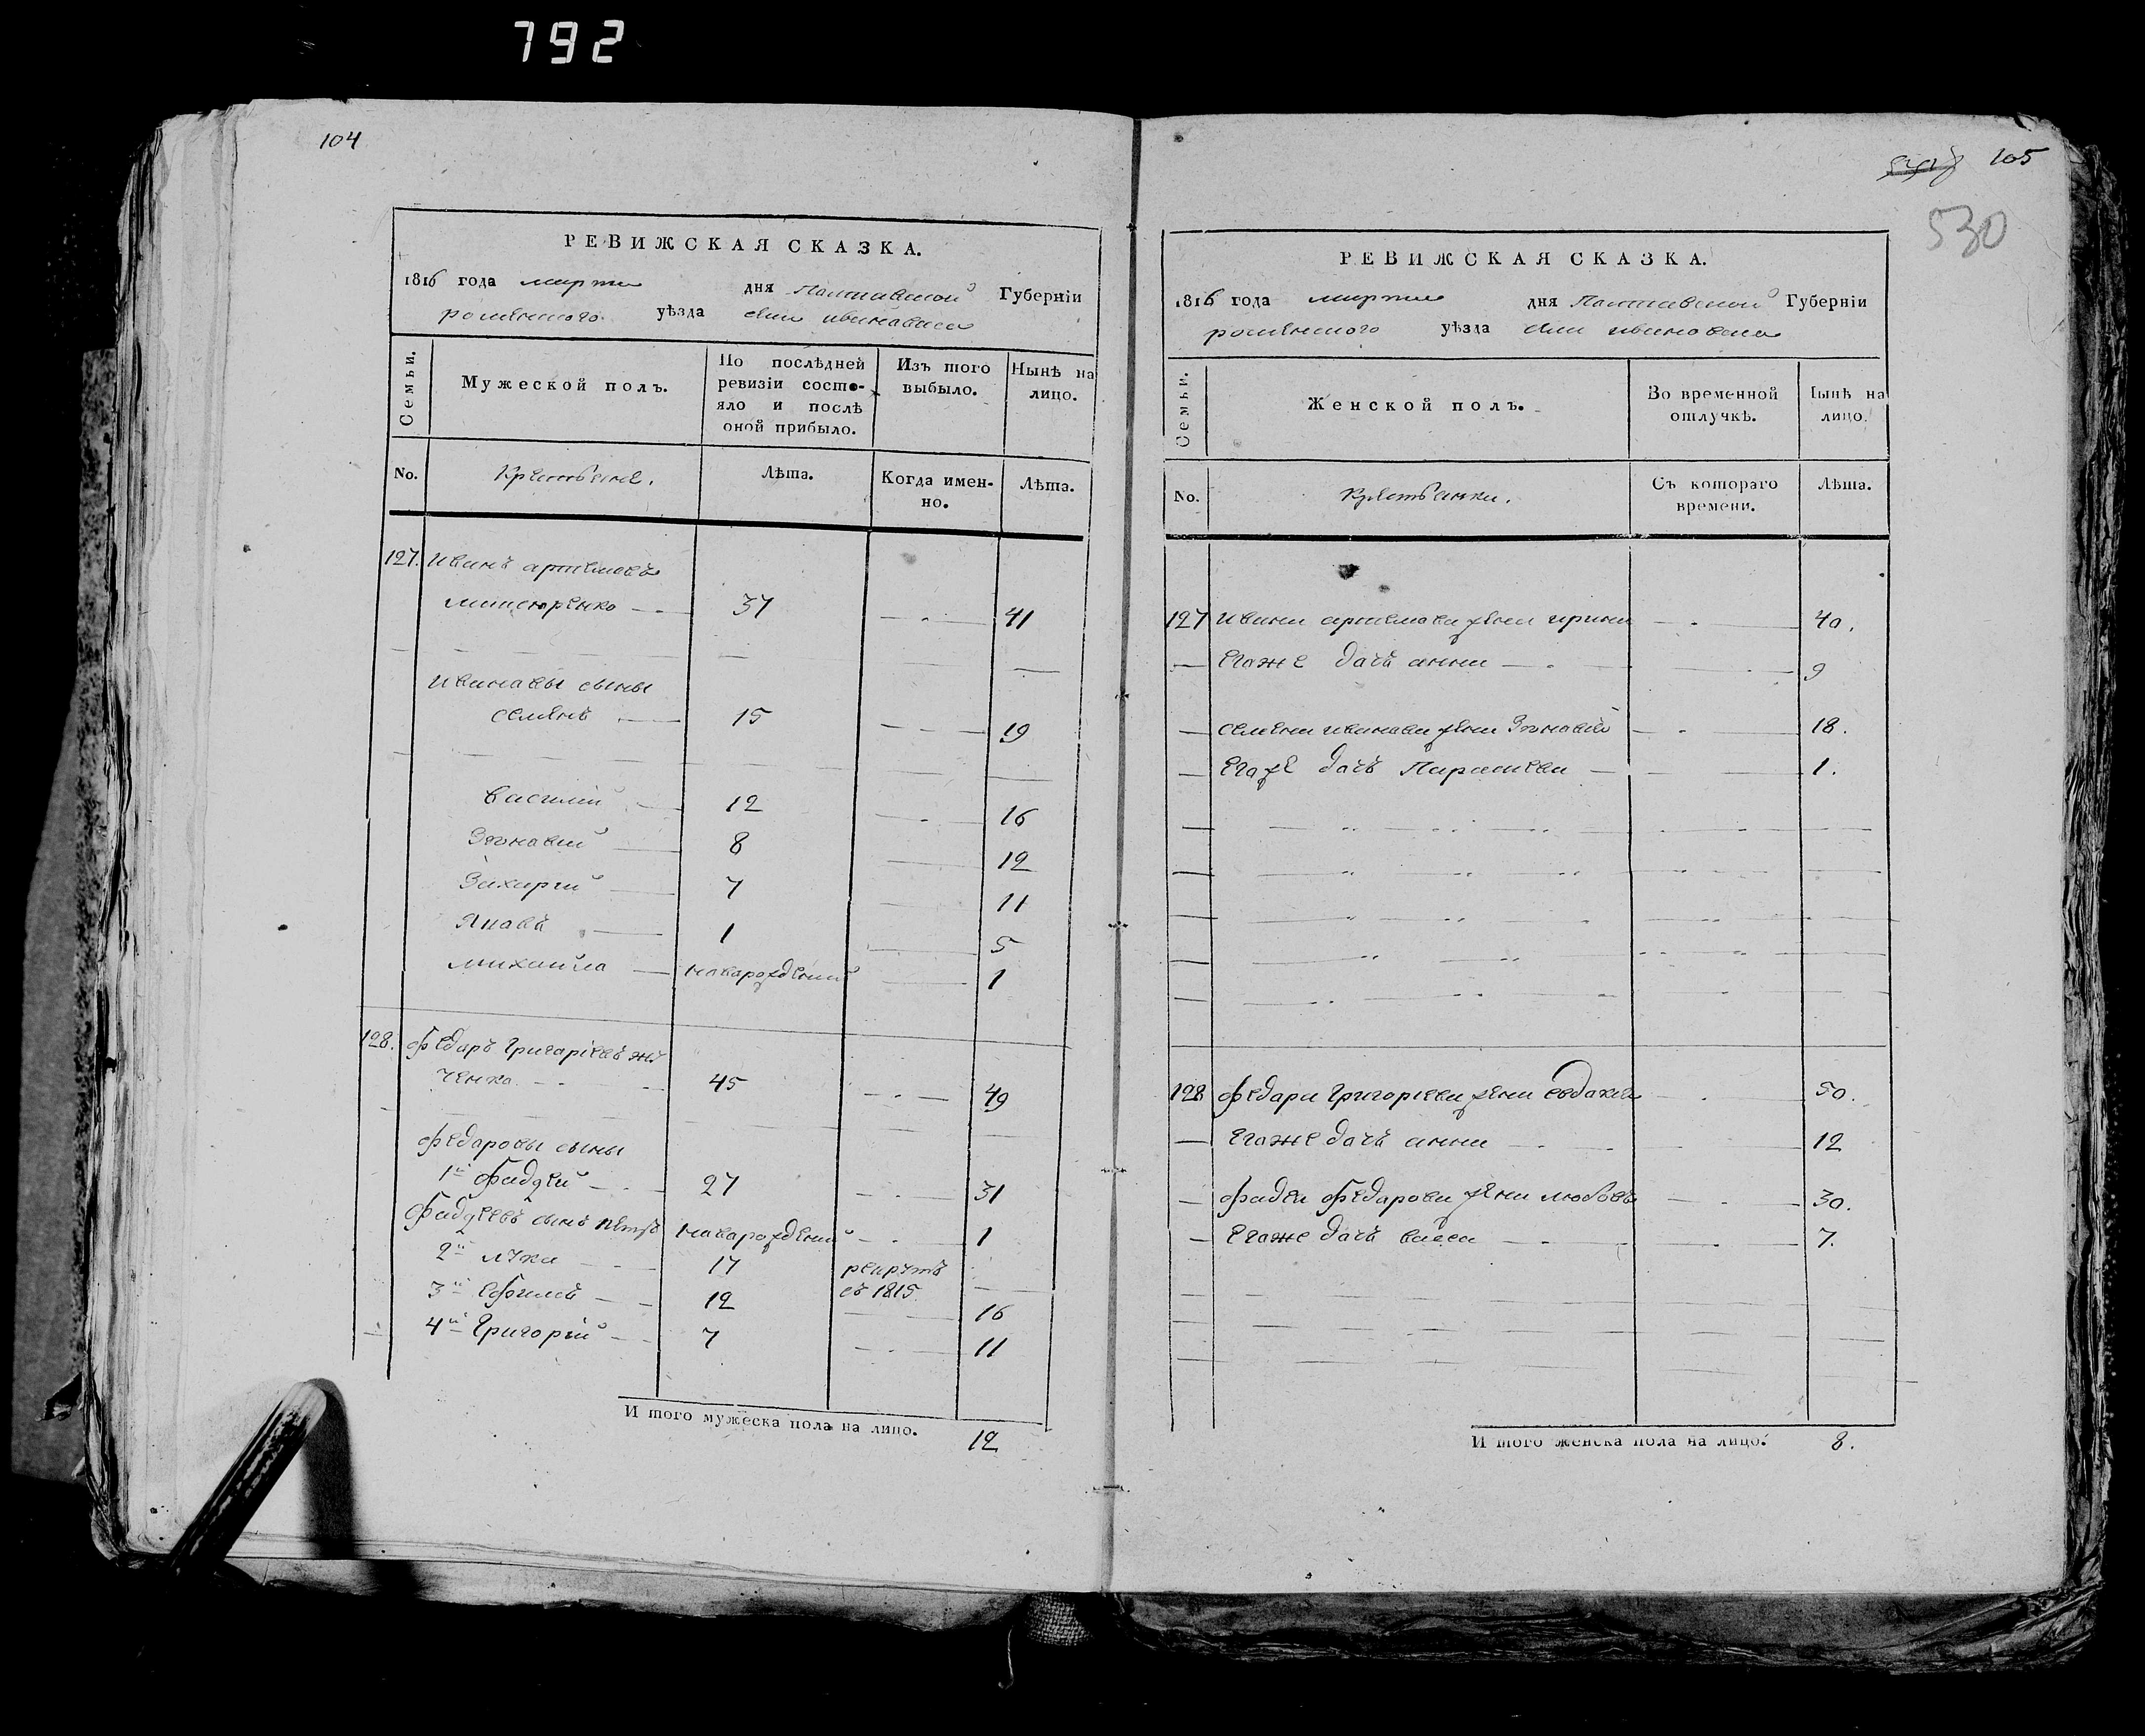 792
104
РЕВИЖСКАЯ СКАЗКА.
1816 года марта дня Полтавской Губерніи
роменского уѣзда села ивановска
Семьи.
Мужеской полъ.
По послѣдней
ревизіи состо-
яло и послѣ
оной прибыло.
Изъ того
выбыло.
Нынѣ на
лицо.
No.
Крестьяне.
Лѣта.
Когда имен-
но.
Лѣта.
127. Иванъ артемовъ
37 41
Ивановы сыны
семенъ 15 19
Василий 12 16
Зѣновий 8 12
Захарий 7 11
Яковъ 1 5
михайла новорождений 1
128. федаръ Григоріевъ
ченко 45 49
федаровы сыны
1й фадѣй 27 31
фадѣевъ сынъ петръ новорождений 1
2й лука 17 рекрутъ
съ 1815
3й Ефимъ 12 16
4й Григорій 7 11
И того мужеска пола на лицо. 12
105
530
РЕВИЖСКАЯ СКАЗКА.
1816 года марта дня Полтавской Губерніи
роменского уѣзда села ивановска
Семьи.
Женской полъ.
Во временной
отлучкѣ.
Нынѣ на
лицо.
No.
Крестьянки.
Съ котораго
времени.
Лѣта.
127 Ивана артемова жена ирина 40.
Егоже дочъ анна 9
семена иванова жена Зѣновия 18.
Егоже дочъ Параскева 1.
128 федара Григоріева жена евдокия 50.
Егоже дочъ анна 12
фадея федарова жена любовъ 30.
Егоже дочъ васса 7.
И того женска пола на лицо. 8.